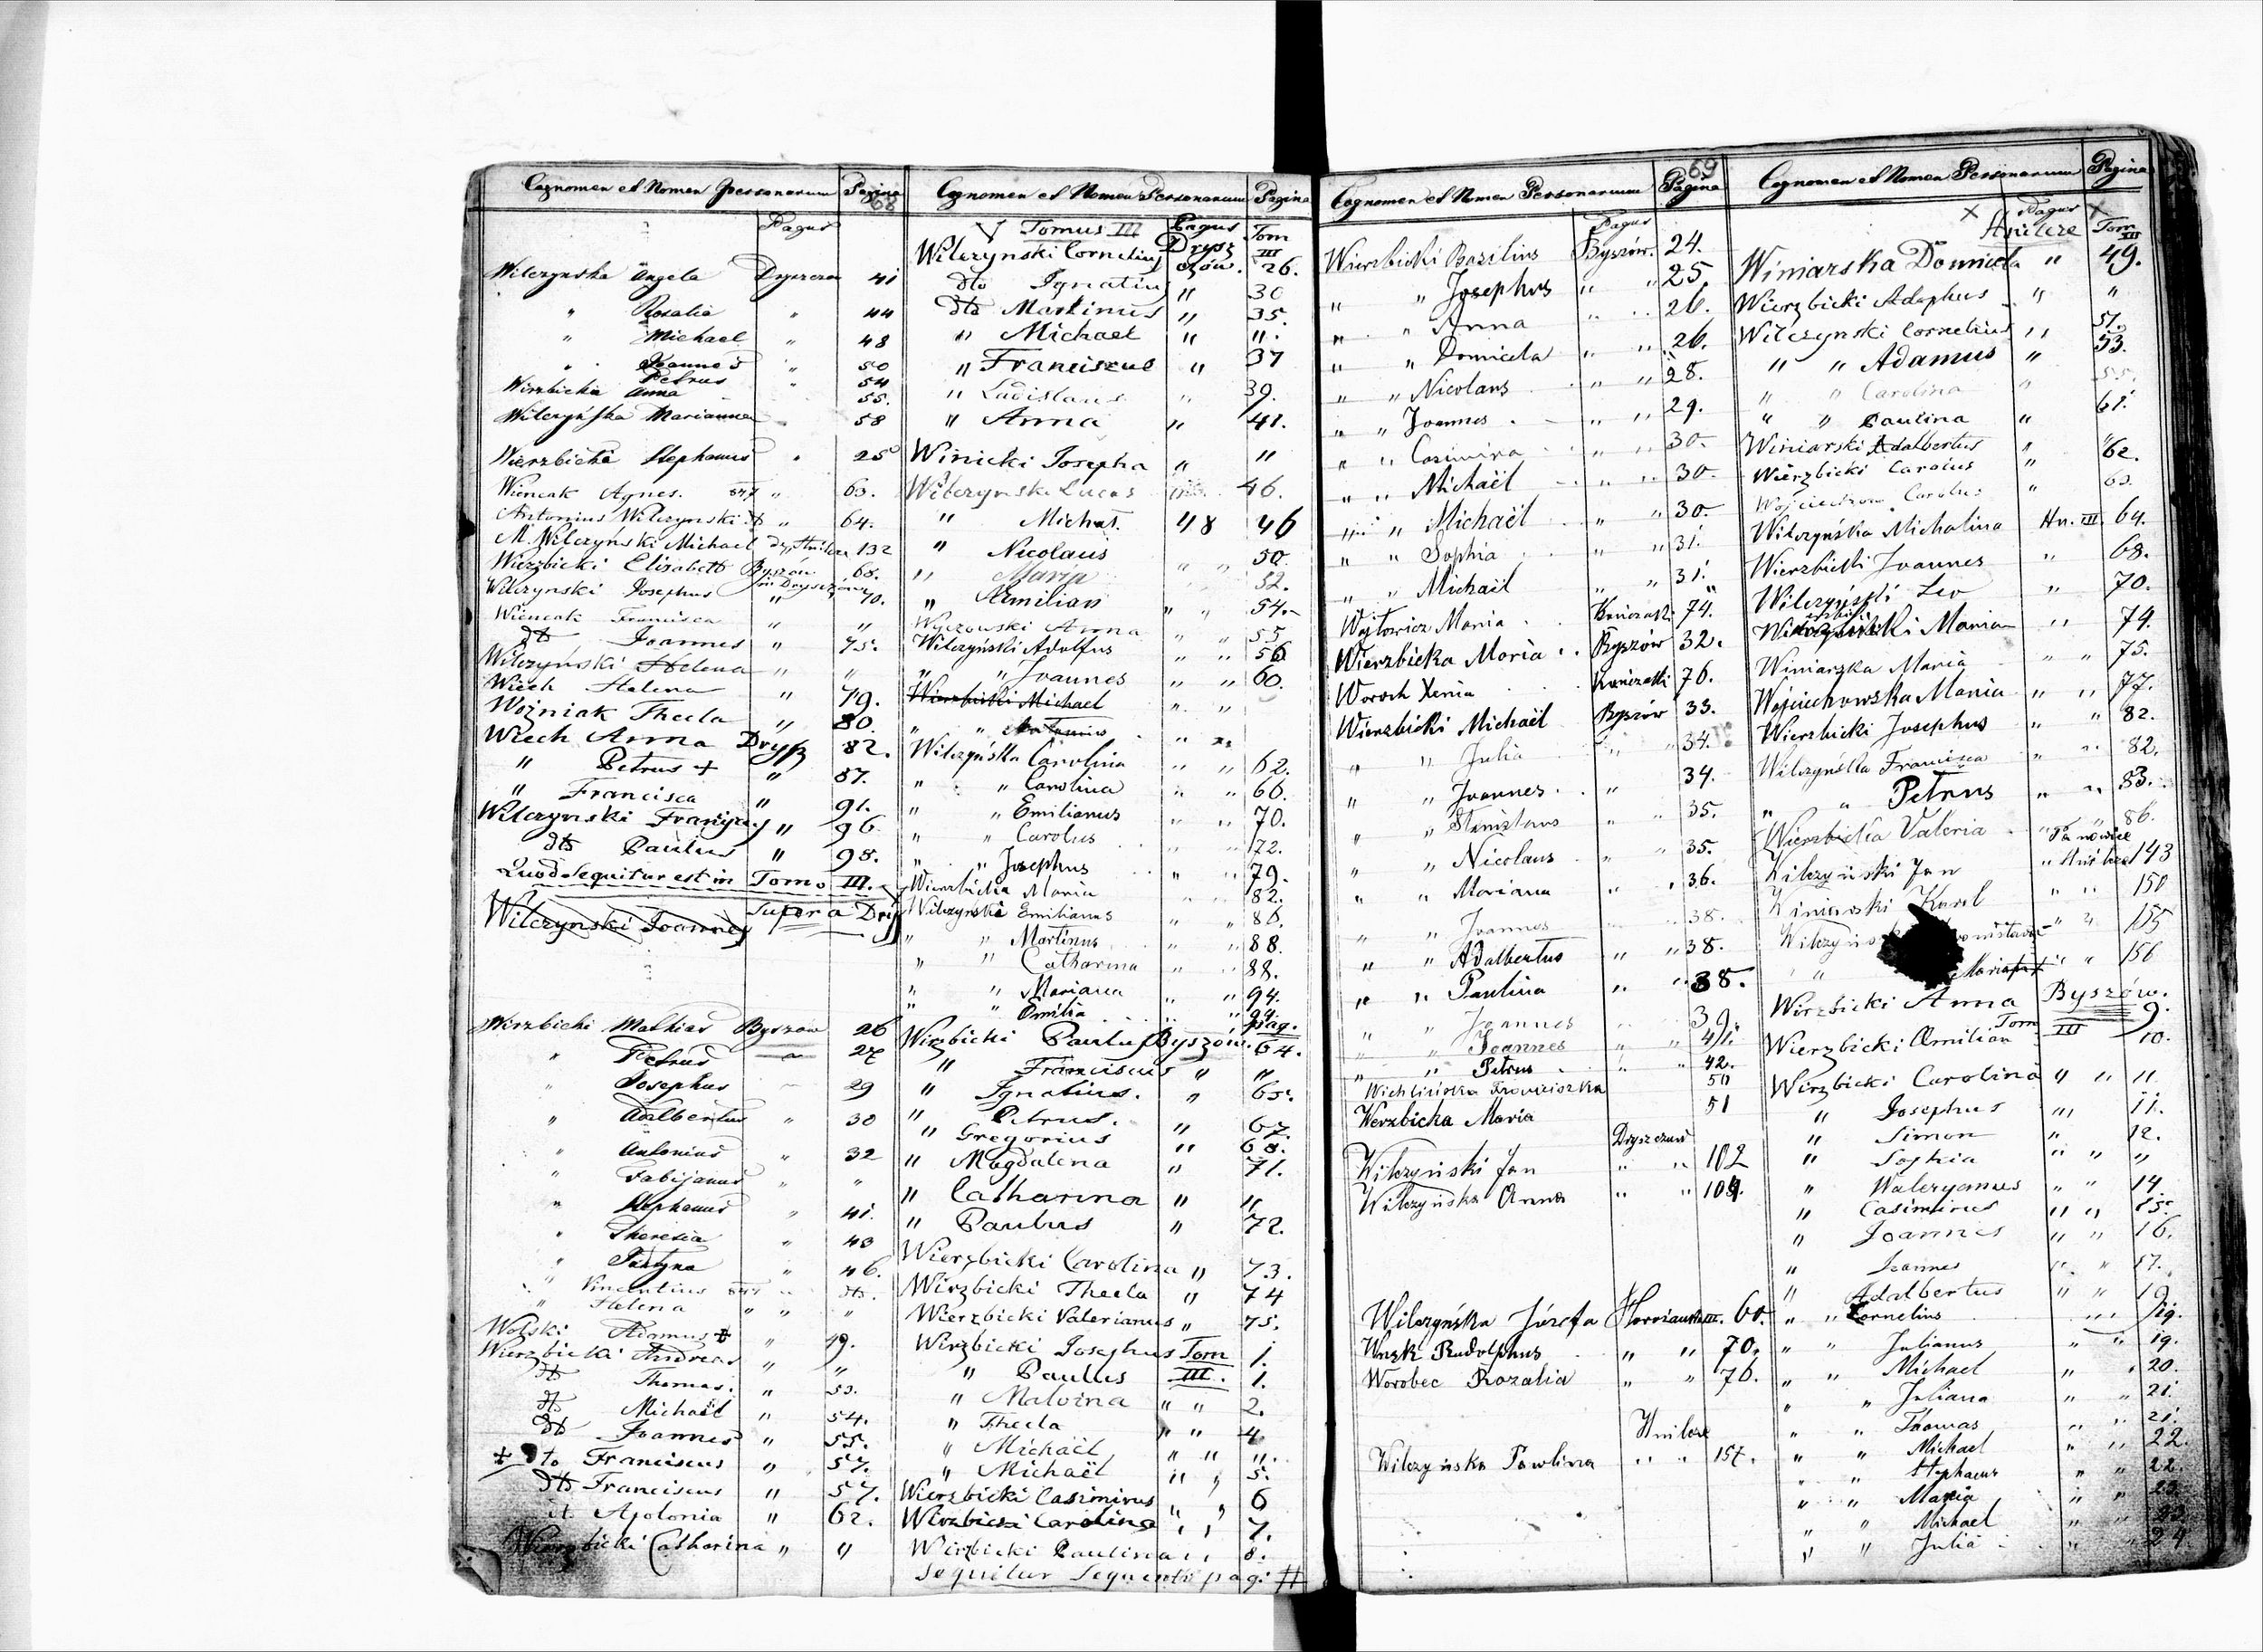 Cognomen et Nomen personarum Pagina
68
Pagus
Wilczynska Angela Dryszczow 41
" Rosalia " 44
" Michael " 48
" Joannes " 50
" Petrus " 54
Wirzbicka Anna 55.
Wilczyńska Marianna 58
Wierzbicki Stephanus " 25
Wiencak Agnes. " 63.
Antonius Wilczynski dto " 64.
M. Wilczyński Michael 132
Wierzbicki Elisabeth Byszów 68.
Wilczynski Josephus in Dryszczów 70.
Wiencak Francisca " "
dto Joannes " 75.
Wilczyński Helena " "
Wiech Helena " 79.
Woźniak Thecla " 80.
Wiech Anna Drysz 82.
" Petrus + " 87.
" Francisca " 91.
Wilczynski Franç " 96
dto Paulus " 98.
Quod Sequitur est in Tomo III.
Wilczynski Joannes Supra Drysz
Wirzbicki Mathias Byszow 26
" Petrus " 27
" Josephus " 29
" Adalbertus " 30
" Antonius " 32
" Fabijanus " "
" Stephanus " 41.
" Theresia " 43
" Justyna " 46.
" Vincentius " dto.
" Helena " " "
Wolski Adamus + " 49.
Wierzbicki Andreas " "
dto Thomas. " 53.
dto Michaël " 54.
dto Joannes " 55.
+ dto Franciscus " 57.
dto Franciscus " 57.
dt. Apolonia " 62.
Wierzbicki Catharina " "
Cognomen et Nomen Personarum Pagina
Tomus III Pagus Tom III
Wilczynski Cornelius Dryszczów. 26.
dto Ignatius " 30
dto Martinus " 35.
" Michael " ".
" Franciszus " 37
" Ladislaus " 39.
" Anna " 41.
Winicki Josepha " "
Wilczynski Lucas 46.
" Michał. 48 46
" Nicolaus 50
" Maria " " 52.
" Aemilian " " 54.
Wyczowski Anna " " 55
Wilczyński Adolfus " " 56
" " Joannes " " 60.
Wierzbicki Michael " "
" " Antonius " "
Wilczyńska Carolina " " 62.
" " Carolina " " 66.
" " Emilianus " " 70.
" " Carolus " " 72.
" " Josephus " " 79.
Wierzbicka Maria " " 82.
Wilczynski Emilianus " " 86.
" " Martinus " " 88.
" " Catharina " " 88.
" " Mariana " " 94.
" " Emilia " " 94.
pag.
Wirzbicki Paulus Byszów. 64.
" Franciscus " "
" Ignatius. " 65.
" Petrus. " 67.
" Gregorius " 68.
" Magdalena " 71.
" Catharina " "
" Paulus " 72.
Wierzbicki Carolina " 73.
Wirzbicki Thecla " 74
Wierzbicki Valerianus " 75.
Wirzbicki Josephus Tom 1.
" Paullus III. 1.
" Malvina " " 2.
" Thecla " " 4
" Michaël " " ".
" Michaël " " 5.
Wierzbicki Casimirus " " 6
Wirzbicki Carolina " " 7.
Wirzbicki Paulina " " 8.
Sequitur Sequenti pag: #
Cognomen et Nomen Personarum Pagina
69
Pagus
Wierzbicki Basilius Byszów. 24.
" " Josephus " " 25.
" " Anna " " 26.
" " Domicela " " 26.
" " Nicolaus " " 28.
" " Joannes " " 29.
" " Casimira " " 30.
" " Michaël " " 30.
" " Michaël " " 30.
" " Sophia " " 31.
" " Michaël " " 31.
Wojtowicz Maria 74.
Wierzbicka Maria Byszów 32.
Woroch Xenia 76.
Wierzbicki Michaël Byszów 33.
" " Julia " " 34.
" " Joannes " 34.
" " Stanislaus " " 35.
" " Nicolaus " " 35.
" " Mariana " " 36.
" " Joannes 38.
" " Adalbertus " " 38.
" " Paulina " " 38.
" " Joannes 39.
" " Joannes " " 41.
" " Petrus " " 42.
Wichlińska Franciszka 50
Werzbicka Maria 51
Dryszczów
Wilczyński Jan " " 102
Wilczyńska Anna " " 104.
Wilczyńska Józefa 60.
Wnzk Rudolphus " " 70.
Worobec Rozalia " " 76.
Hnilcze
Wilczyńska Pawlina " " 157.
Cognomen et Nomen Personarum Pagina
Pagus
Hnilcze Tom III
Winiarska Domicela " 49.
Wierzbicki Adolphus " "
Wilczynski Cornelius " 51.
" " Adamus " 53.
" " Carolina " 55.
" " Paulina " 61.
Winiarski Adalbertus " "
Wierzbicki Carolus " 62.
Carolus " 63.
Wilczyńska Michalina Hn. III. 64.
Wierzbicki Joannes " 68.
Wilczyński Leo " 70.
Maria " 74.
Winiarska Maria " " 75.
Wojciechowska Maria " " 77.
Wierzbicki Josephus " " 82.
Wilczyńska Francisca " " 82.
" " Petrus " " 83.
Wierzbicka Valeria " " 86.
Wilczyński Jan " Hnilcze 143
Winiarski Karol " " 150
" " 155
" Maria " " 156
Wirzbicki Anna Byszów. 9.
Wierzbicki Emilian Tom III 10.
Wirzbicki Carolina " " 11.
" Josephus " " 11.
" Simon " 12.
" Sophia " " "
" Waleryanus " " 14.
" Casimirus " " 15.
" Joannes " " 16.
" Joannes " " 17.
" Adalbertus " " 19
" " Cornelius " " 19.
" " Julianus " " 19.
" " Michael " " 20.
" " Juliana " " 21.
" " Thomas " " 21.
" " Michael " " 22.
" " Stephanus " " 22.
" " Maria " " 23.
" " Michael " " 23.
" " Julia " " 24.